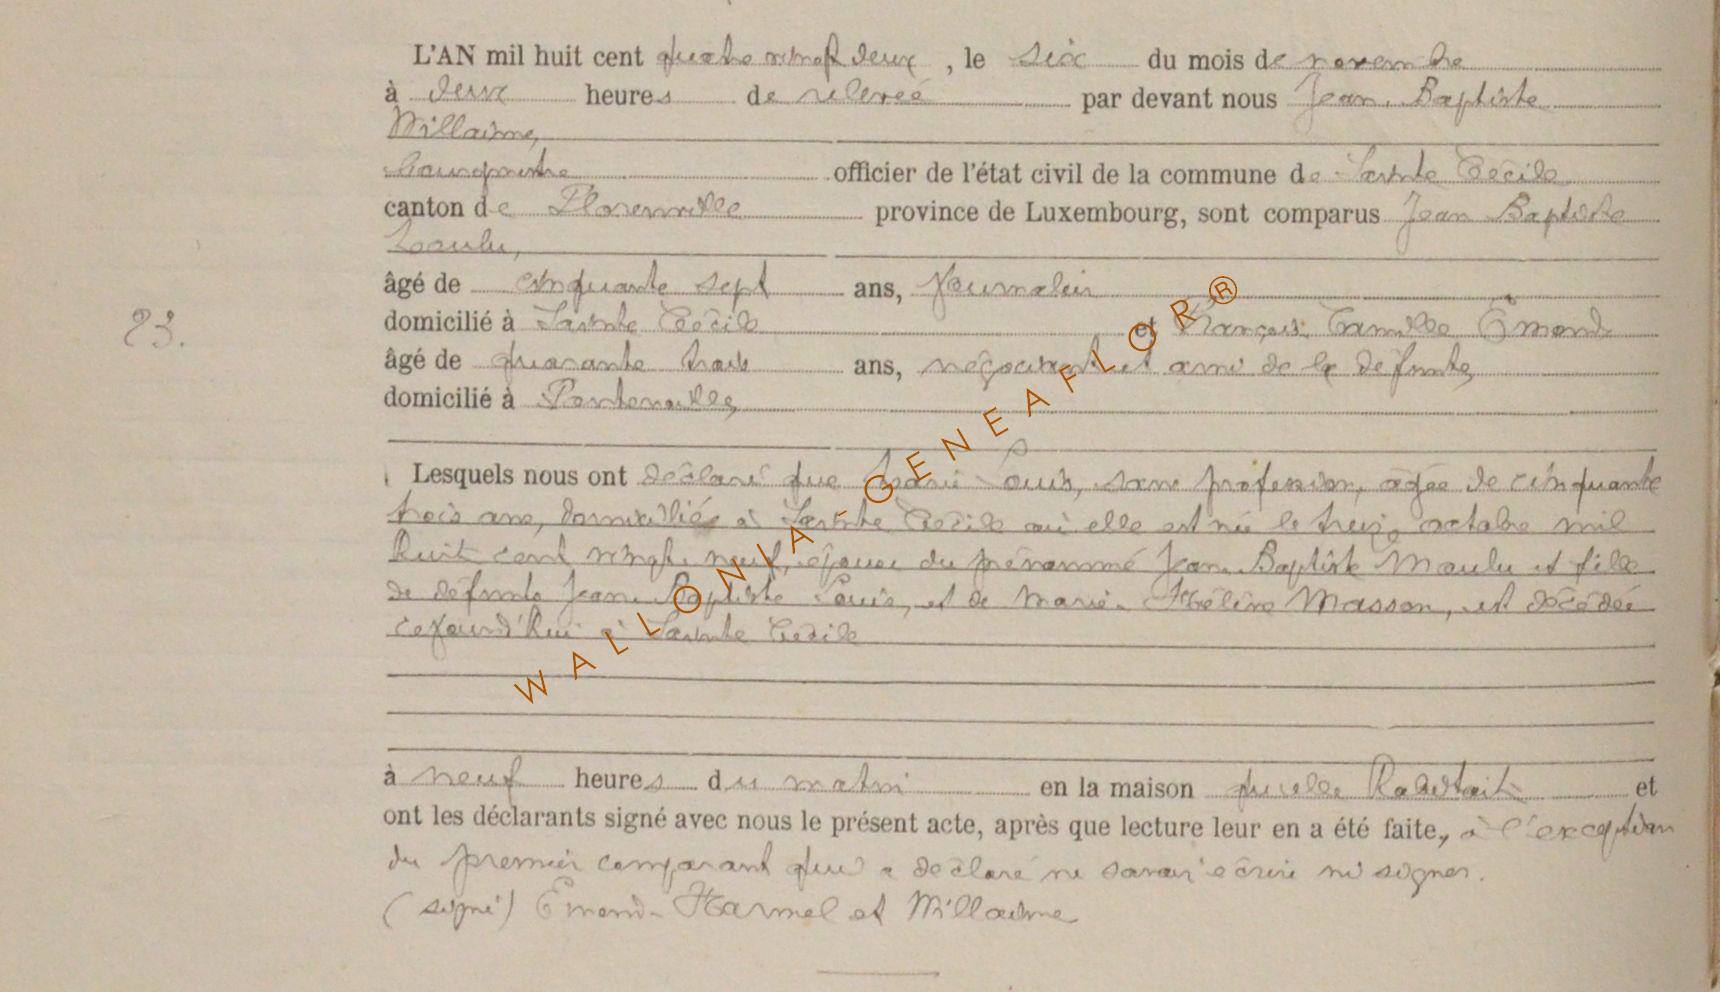 L'AN mil huit cent quatre vingt deux, le six du mois de novembre
à deux heures de relevée par devant nous Jean-Baptiste
Willaime,
bourgmestre officier de l'état civil de la commune de Sainte Cécile
canton de Florenville province de Luxembourg, sont comparus Jean Baptiste
âgé de cinquante sept ans, journalier
23. domicilié à Sainte Cécile et François Camille Emond
âgé de quarante trois ans, négociant et ami de la défunte,
domicilié à
Lesquels nous ont déclaré que Marie Louis, sans profession, âgée de cinquante
trois ans, domiciliée à Sainte Cécile où elle est née le treize octobre mil
huit cent vingt-neuf, épouse du prénommé Jean-Baptiste Maulu et fille
de défunts Jean-Baptiste Louis, et de Marie-Hélène Masson, est décédée
cejourd'hui à Sainte Cécile
à neuf heures du matin en la maison qu'elle habitait et
ont les déclarants signé avec nous le présent acte, après que lecture leur en a été faite, à l'exception
du premier comparant qui a déclaré ne savoir écrire ni signer.
(signé) Emond-Harmel et Willaime
WALLONIA-GENEAFLOR®